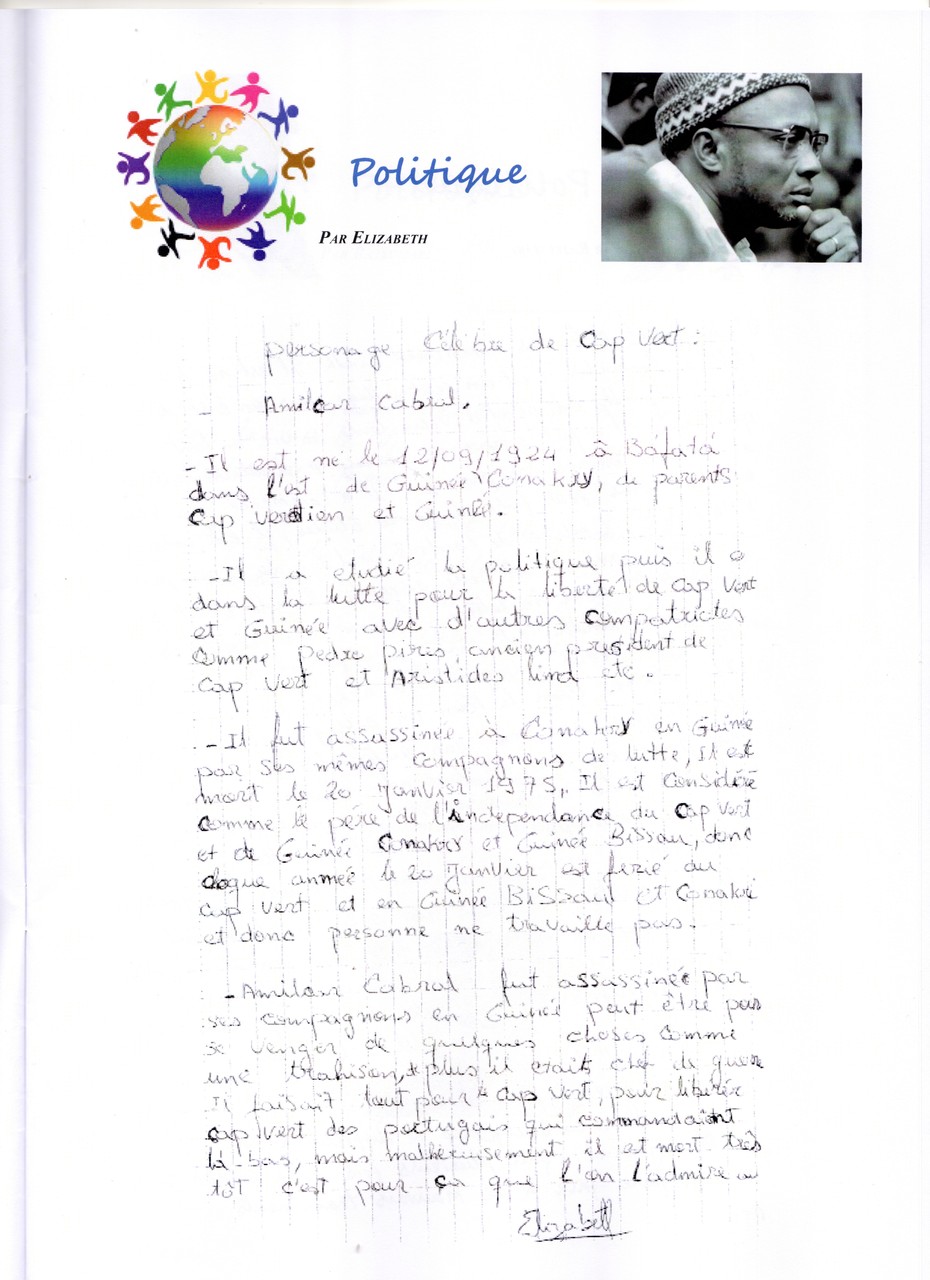 Politique
PAR ELIZABETH
personage Célèbre de Cap Vert :
- Amilcar Cabral.
- Il est né le 12/09/1924 à Báfatá
dans l'est de Guinée Conakry, de parents
Cap verdien et Guinée.
- Il a etudié la politique puis il a
dans la lutte pour la liberté de Cap Vert
et Guinée avec d'autres compatriotes
comme Pedre pires ancien président de
Cap Vert et Aristides lima etc.
- Il fut assassinée à Conakry en Guinée
par ses mêmes compagnons de lutte, il est
mort le 20 Janvier 1975, Il est Considéré
comme le père de l'independance du Cap Vert
et de Guinée Conakry et Guinée Bissau, donc
année le 20 Janvier est ferié au
Cap Vert et en Guinée BiSsau et Conakri
et donc personne ne travaille pas.
- Amilcar Cabral fut assassinée par
ses compagnons en Guinée peut être pour
se venger de quelques choses comme
une trahison, plus il etait chef de guerre
Il faisait tout pour le Cap Vert, pour libérer
Cap Vert des portugais qui commandaient
là-bas, mais malheruisement il est mort très
tôt c'est pour ça que l'on l'admire
Elizabeth